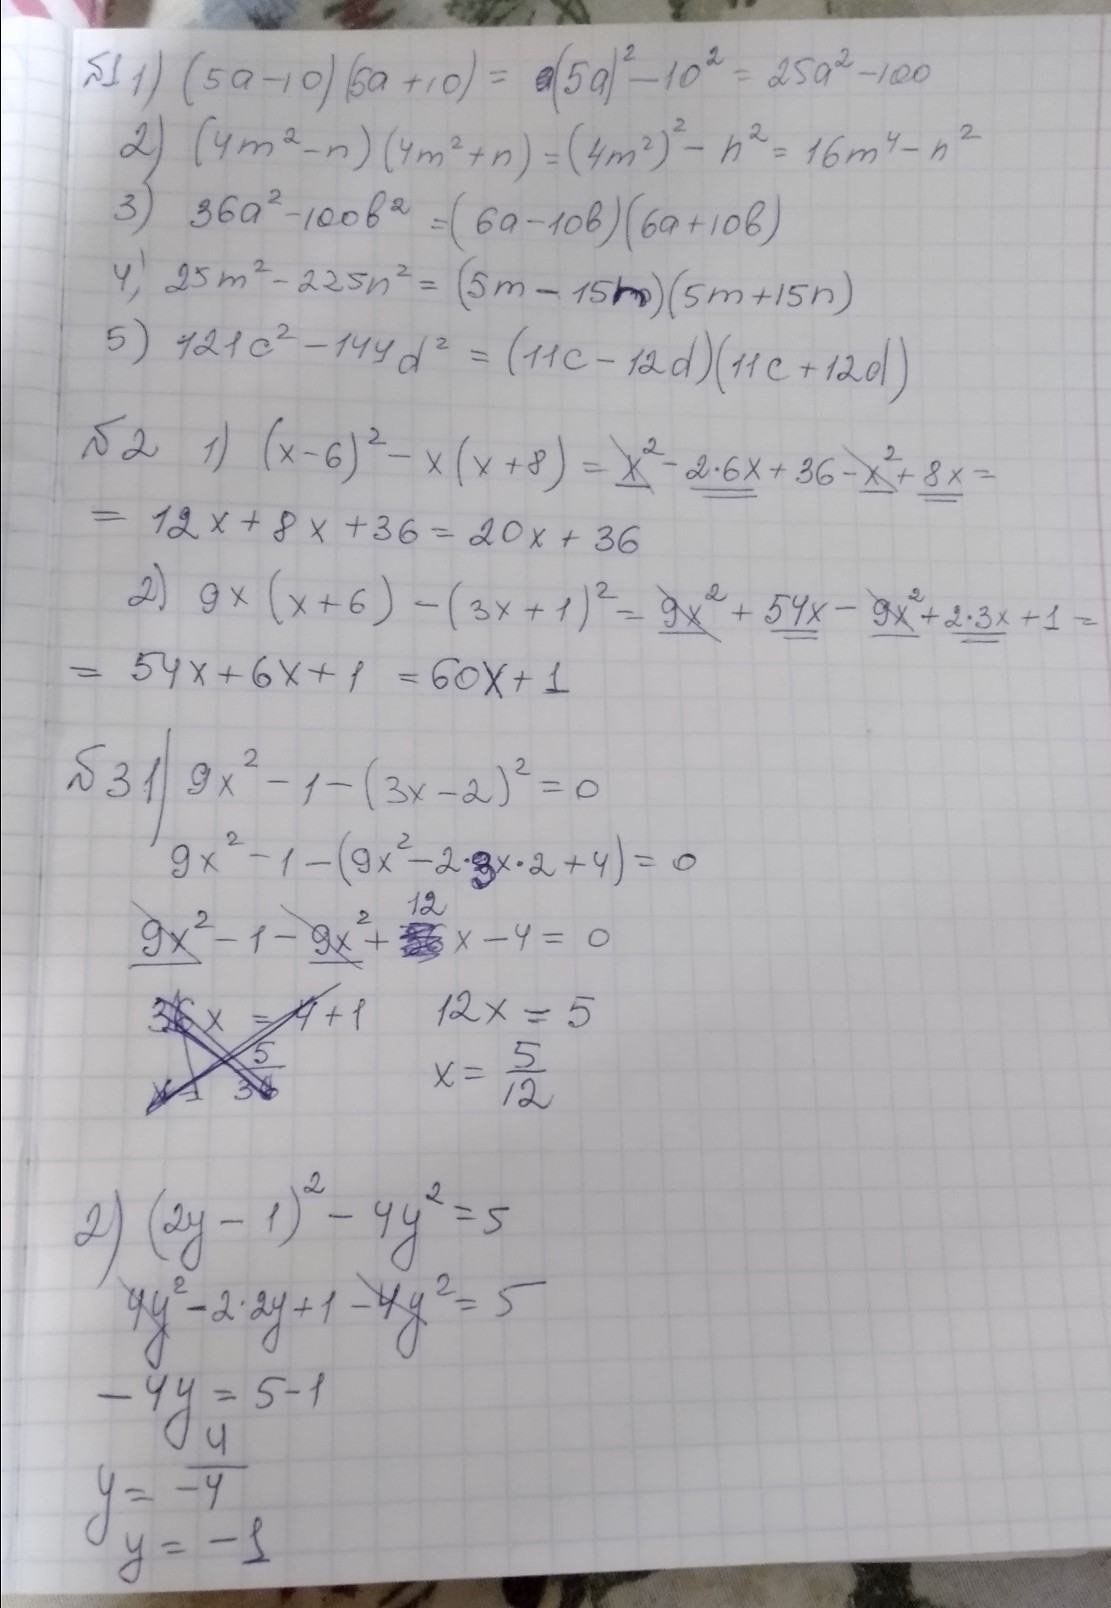 №1 1) (5a-10)(5a+10) = (5a)² - 10² = 25a² - 100
2) (4m² - n)(4m² + n) = (4m²)² - n² = 16m⁴ - n²
3) 36a² - 100в² = (6a - 10в)(6a + 10в)
4) 25m² - 225n² = (5m - 15n)(5m + 15n)
5) 121c² - 144d² = (11c - 12d)(11c + 12d)
№2 1) (x-6)² - x(x+8) = x² - 2·6x + 36 - x² + 8x =
= 12x + 8x + 36 = 20x + 36
2) 9x(x+6) - (3x+1)² = 9x² + 54x - 9x² + 2·3x + 1 =
= 54x + 6x + 1 = 60x + 1
№3 1) 9x² - 1 - (3x-2)² = 0
9x² - 1 - (9x² - 2·3x·2 + 4) = 0
9x² - 1 - 9x² + 12x - 4 = 0
36x = 4+1 12x = 5
x = 5/36 x = 5/12
2) (2y - 1)² - 4y² = 5
4y² - 2·2y + 1 - 4y² = 5
-4y = 5-1
y = 4/-4
y = -1